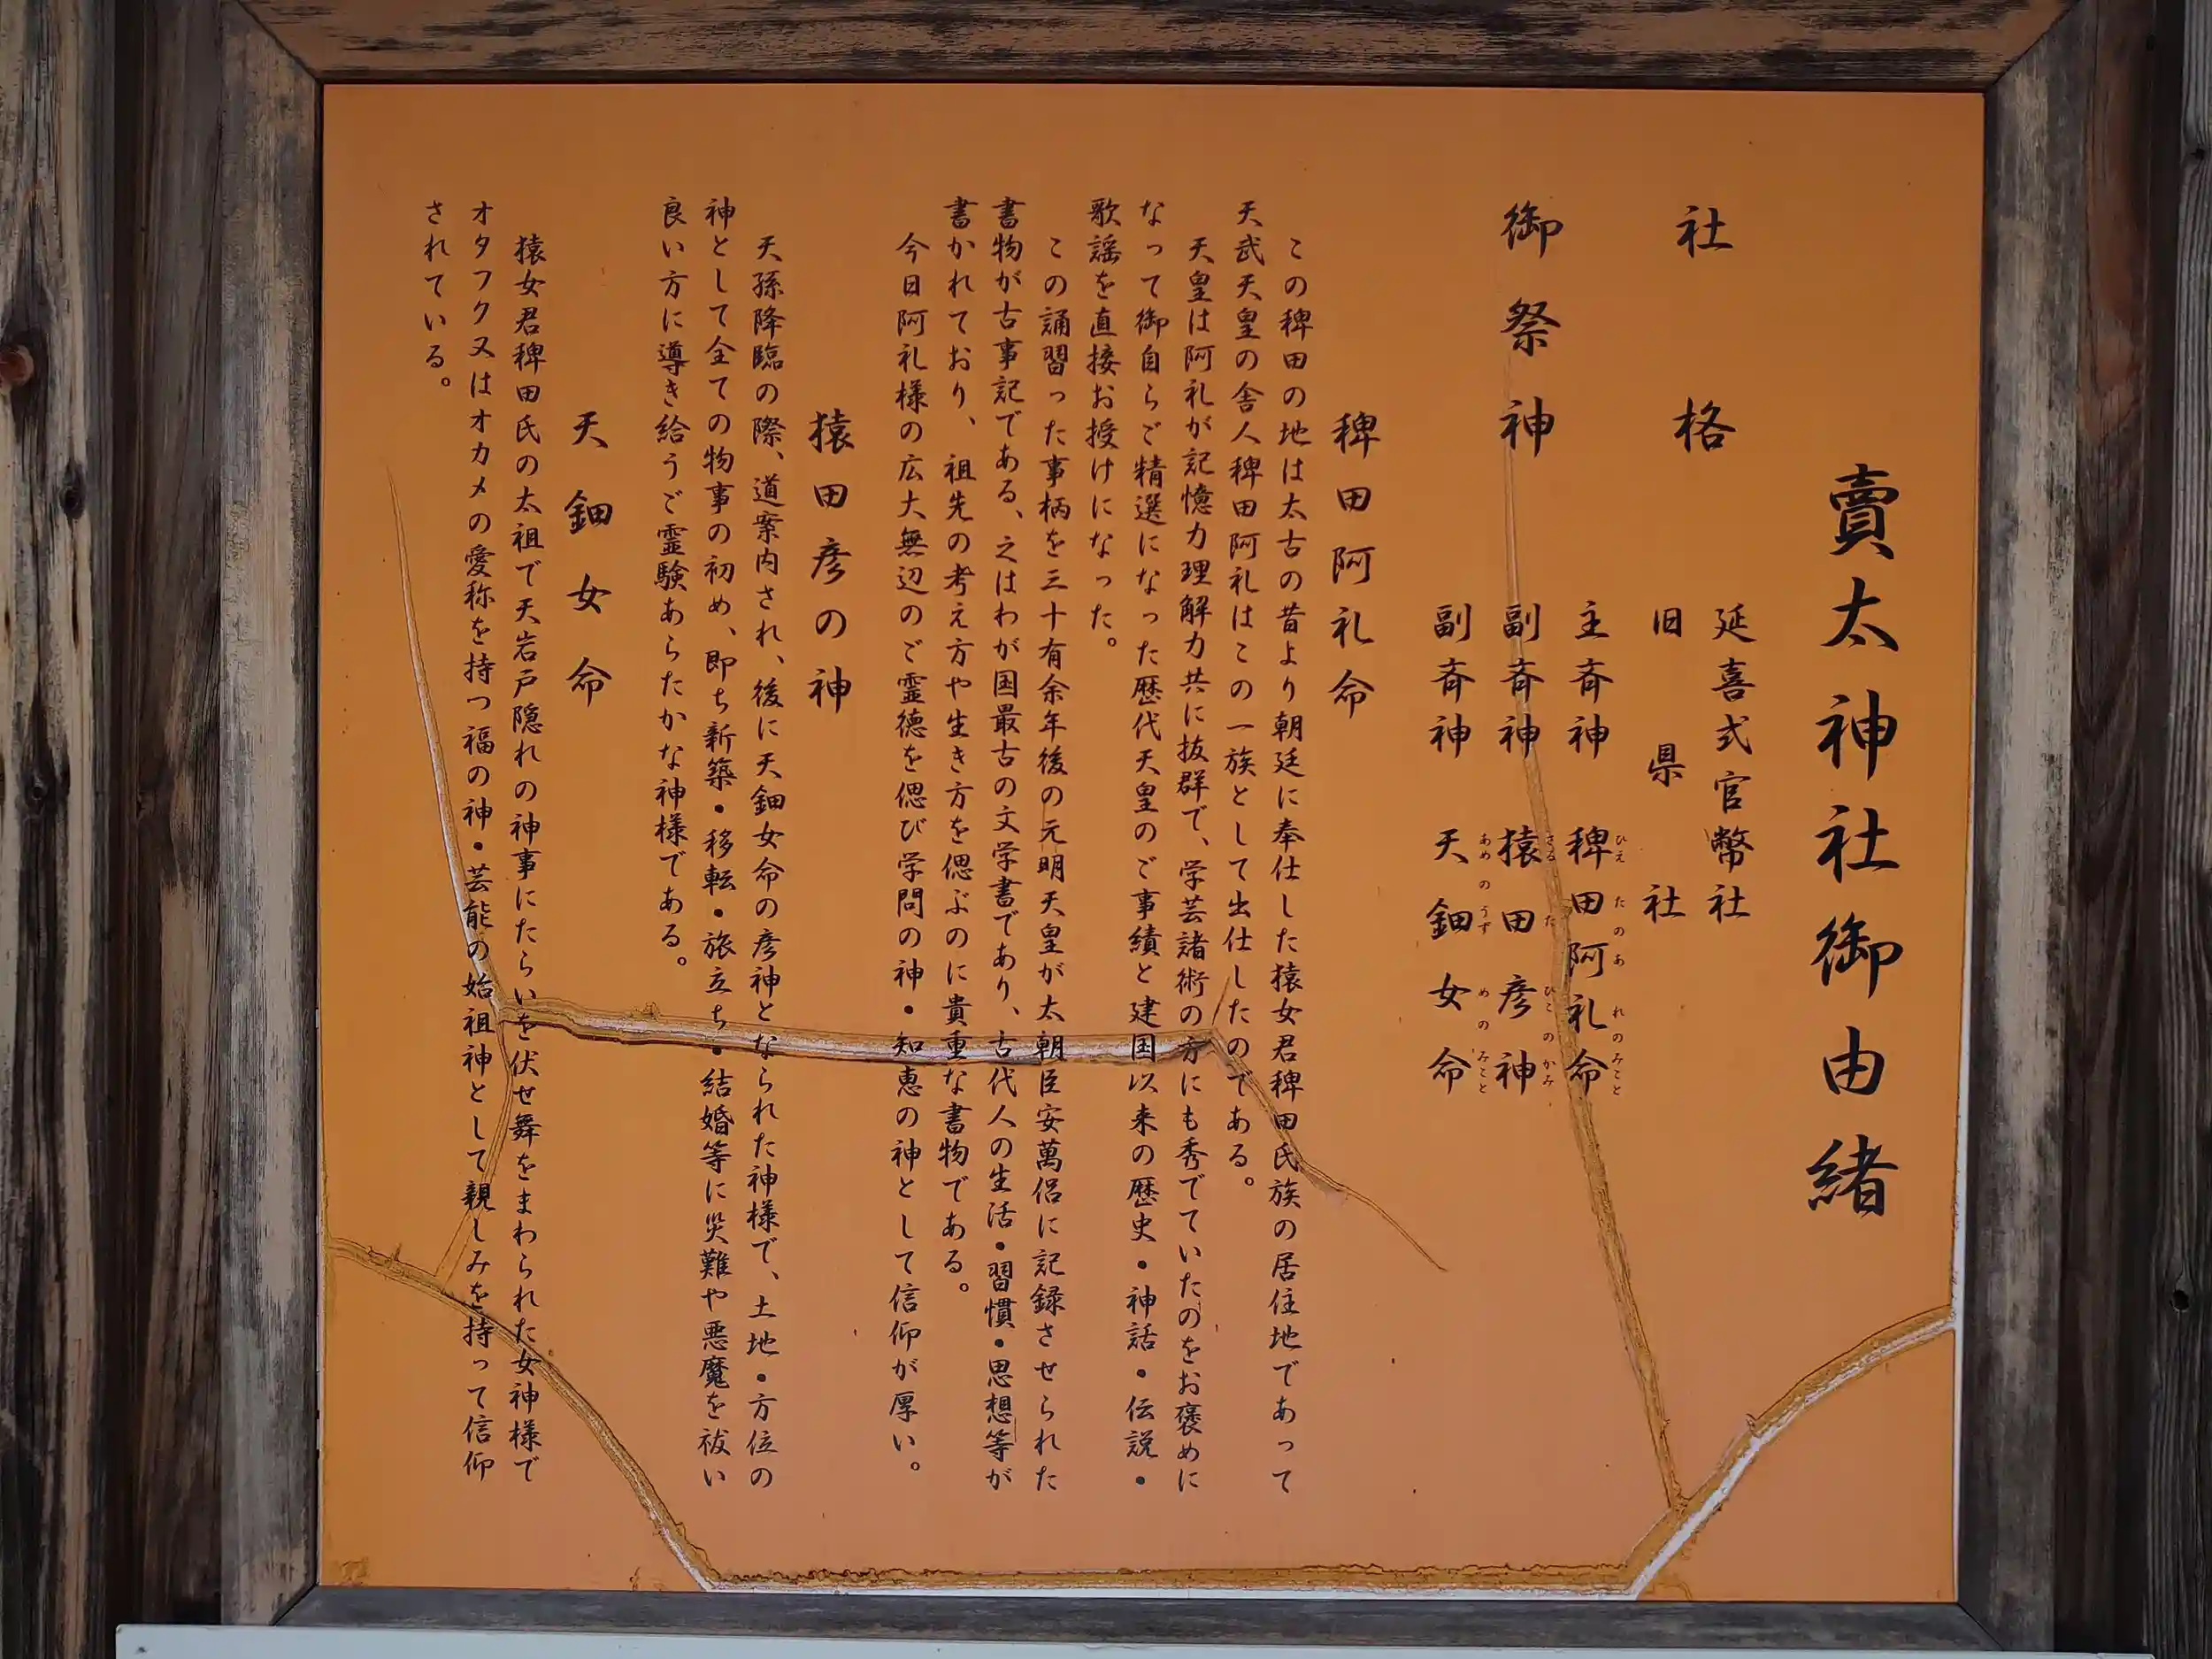 賣太神社御由緒
社格 延喜式官幣社
旧県社
御祭神 主斉神 稗田阿礼命
ひえたのあれのみこと
副斉神 猿田彦神
さるたひこのかみ
副斉神 天鈿女命
あめのうずめのみこと
稗田阿礼命
この稗田の地は太古の昔より朝廷に奉仕した猿女君稗田氏族の居住地であって
天武天皇の舎人稗田阿礼はこの一族として出仕したのである。
天皇は阿礼が記憶力理解力共に抜群で、学芸諸術の方にも秀でていたのをお褒めに
なって御自らご精選になった歴代天皇のご事績と建国以来の歴史・神話・伝説・
歌謡を直接お授けになった。
この誦習った事柄を三十有余年後の元明天皇が太朝臣安萬侶に記録させられた
書物が古事記である、之はわが国最古の文学書であり、古代人の生活・習慣・思想等が
書かれており、祖先の考え方や生き方を偲ぶのに貴重な書物である。
今日阿礼様の広大無辺のご霊徳を偲び学問の神・知恵の神として信仰が厚い。
猿田彦の神
天孫降臨の際、道案内され、後に天鈿女命の彦神となられた神様で、土地・方位の
神として全ての物事の初め、即ち新築・移転・旅立ち・結婚等に災難や悪魔を祓い
良い方に導き給うご霊験あらたかな神様である。
天鈿女命
猿女君稗田氏の太祖で天岩戸隠れの神事にたらいを伏せ舞をまわられた女神様で
オタフク又はオカメの愛称を持つ福の神・芸能の始祖神として親しみを持って信仰
されている。